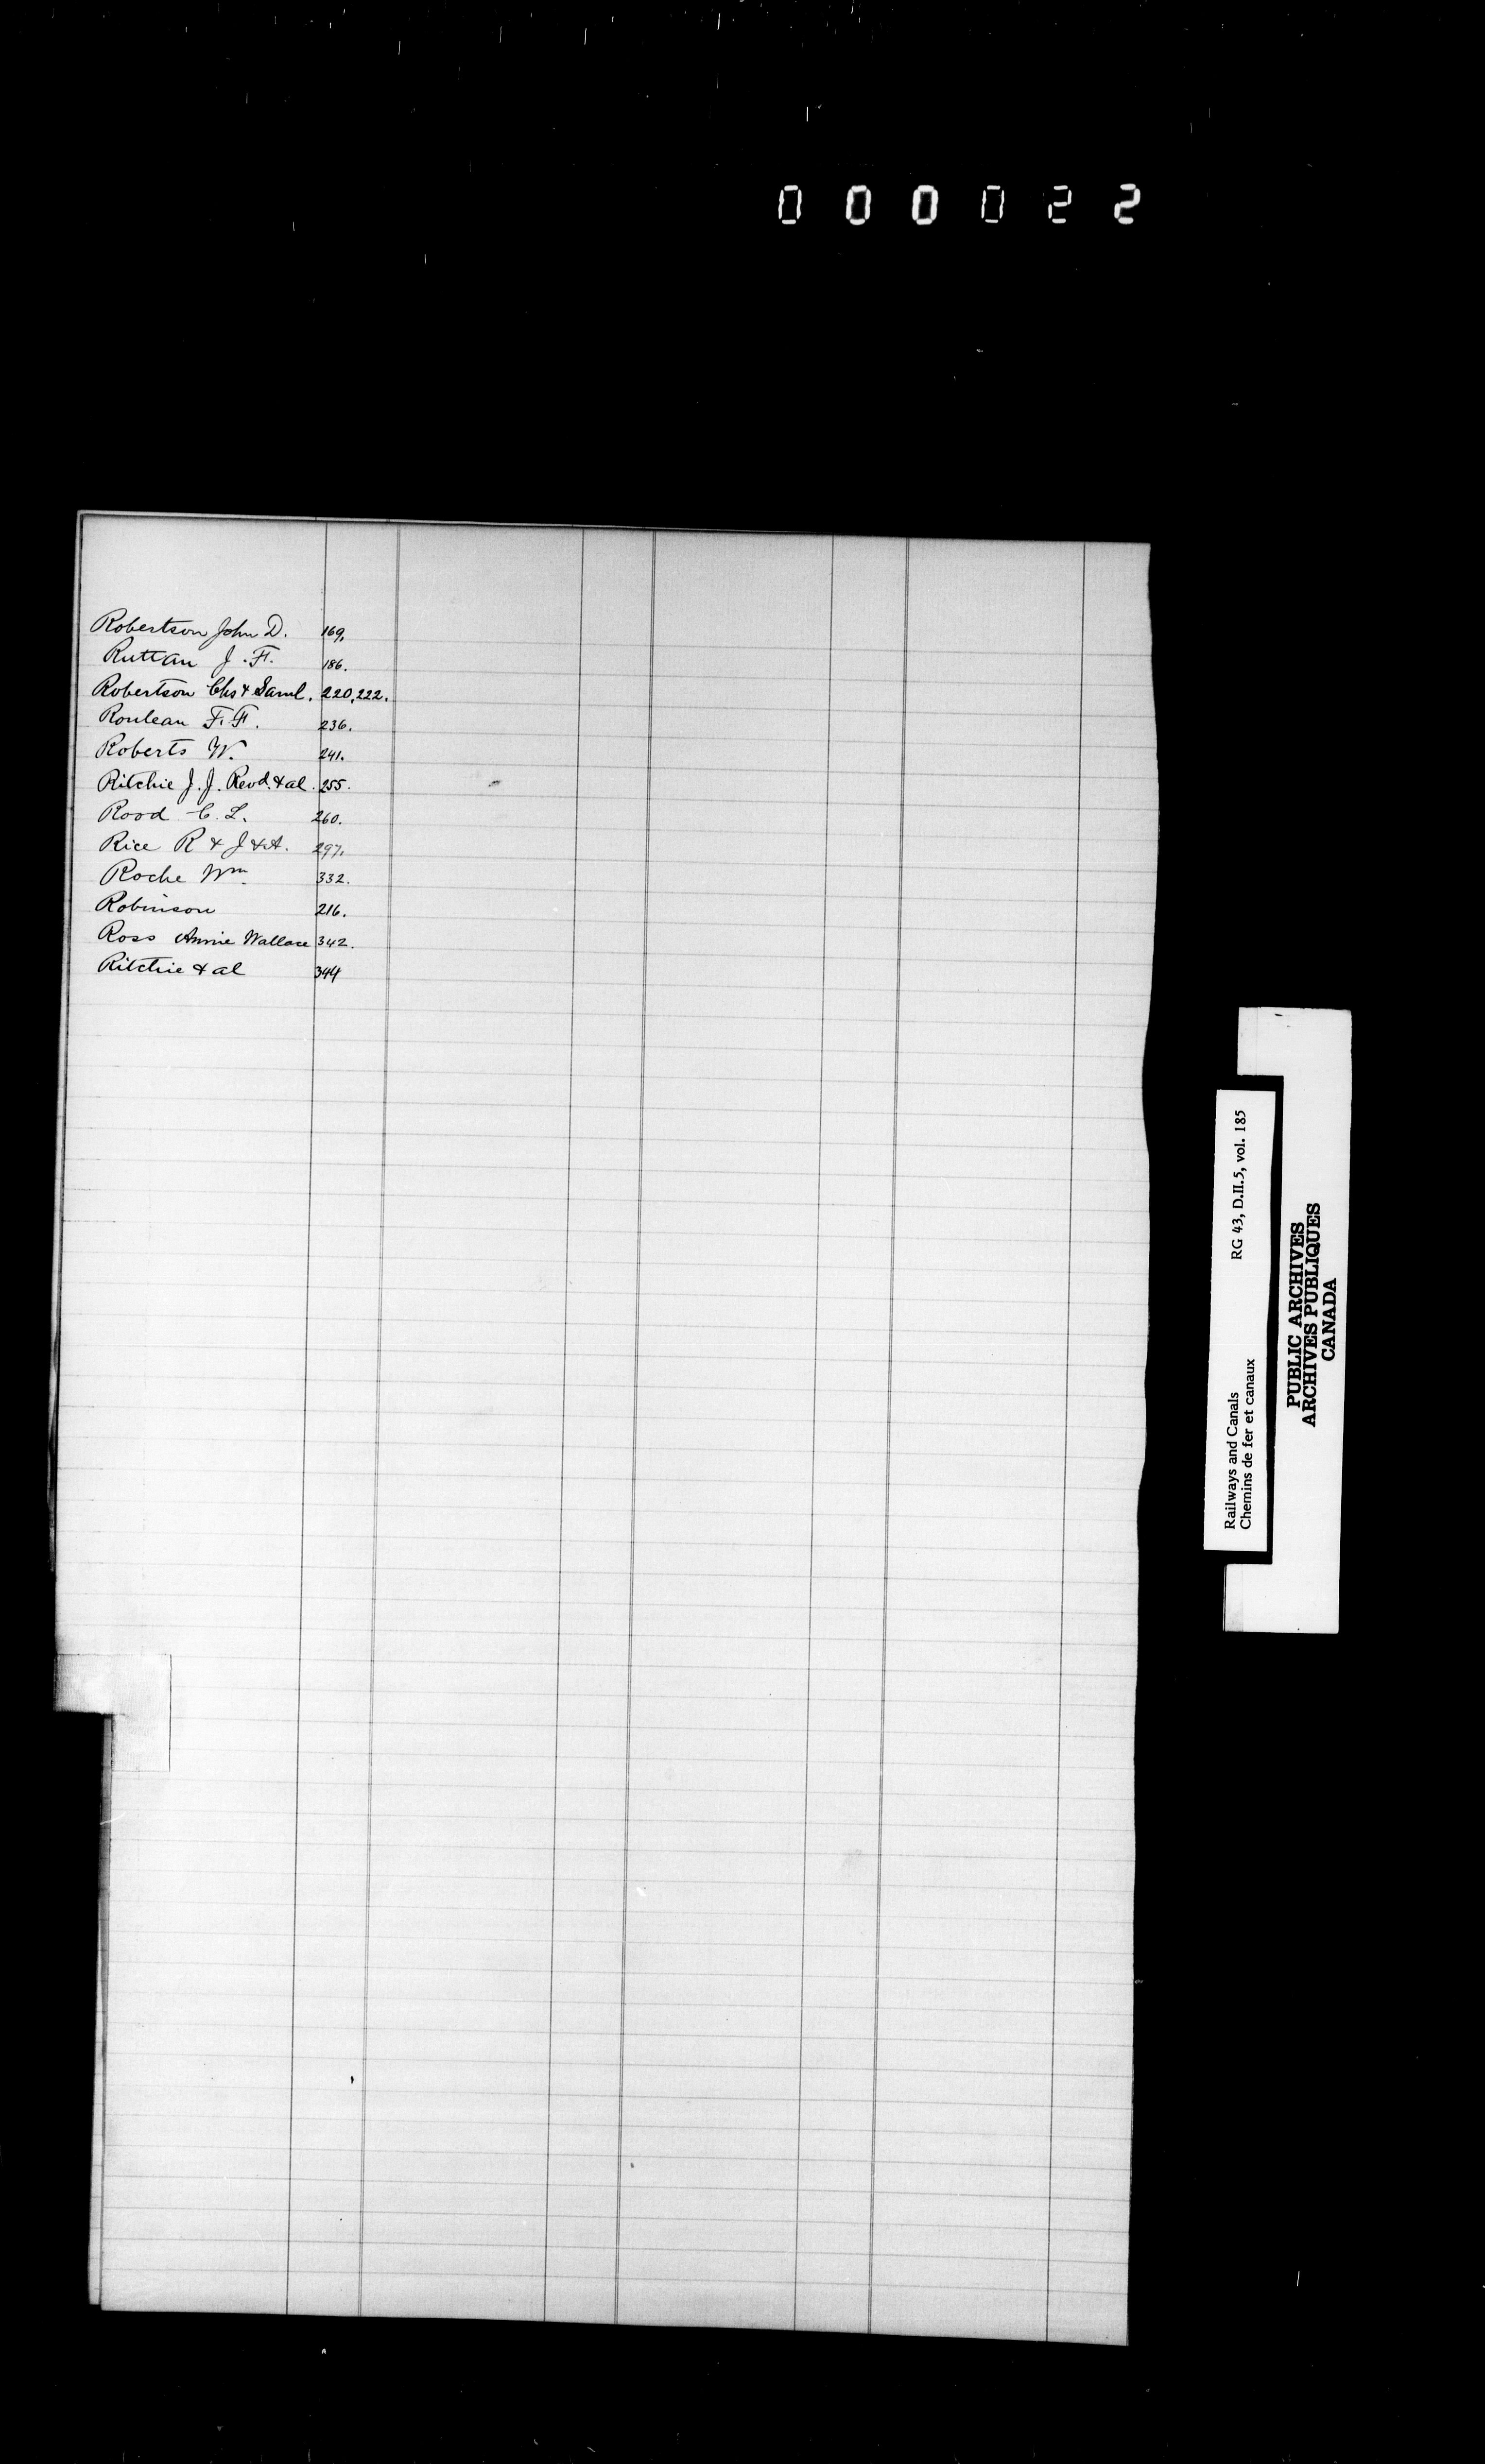 000022
Robertson John D. 169.
Ruttan J. F. 186.
Robertson Chs & Saml. 220, 222.
Rouleau F. F. 236.
Roberts W. 241.
Ritchie J. J. Revd. & al. 255.
Rood C. L. 260.
Rice R & J & A. 297.
Roche Wm 332.
Robinson 216.
Ross Annie Wallace 342.
Ritchie & al 344
Railways and Canals RG 43, D.II.5, vol. 185
Chemins de fer et canaux
PUBLIC ARCHIVES
ARCHIVES PUBLIQUES
CANADA